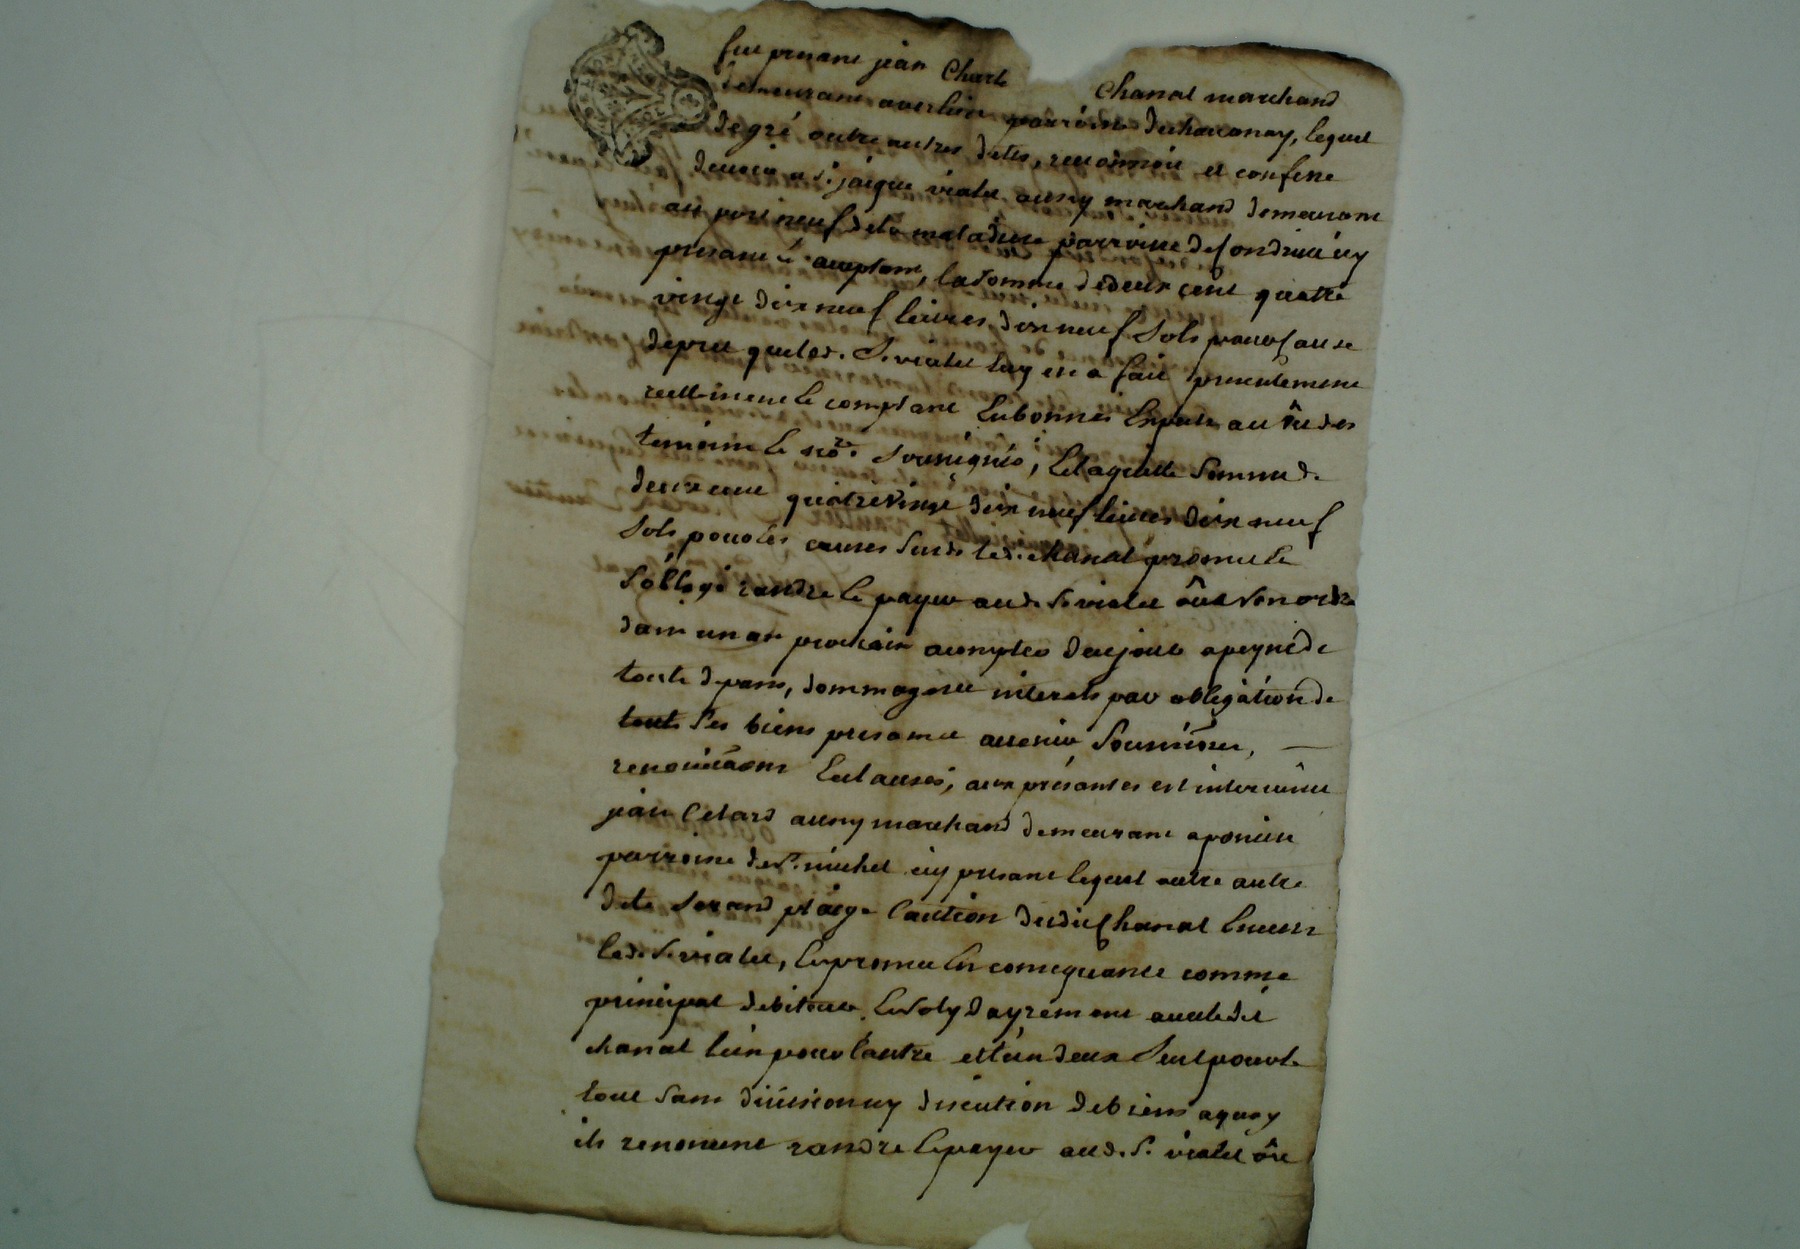 fut presant jean Charle chanal marchand
demeurant a verlieu parroisse de chavanay, lequel
de gré outre autres dettes, reconnoit et confesse
devoir a Sr. jaique vialet aussy marchand demeurant
au port neuf de la maladiere parroisse de Condrieu icy
presant é acceptant, la somme de deux cent quatre
vingt dix neuf livres dix neuf sols pour cause
de pret que led. Sr vialet luy en a fait presentement
reellement le comptant en bonnes Especes au vû des
temoins le nore. soussignés, Et laquelle somme de
deux cent quatre vingt dix neuf livres dix neuf
sols pour les causes susd. led. chanal promet le
s'oblige randre le payer aud. Sr vialet ôu a son ordre
dans un an prochain a compter de ce jour a peyne de
touts depans, dommages et interets par obligation de
touts ses biens presant et avenir soumissions,
renonciãons Et clauses, aux présantes est intervenûe
jean Celard aussy marchand demeurant a ponsieu
parroisse de St. michel icy presant lequel outre autre
dete se rand plaige Caution dudit Chanal Envers
led. Sr vialet, Et promet En consequance comme
principal debiteur Et solydayrement avec ledit
chanal l'un pour l'autre et l'un deux seul pour le
tout sans division ny discution de biens a quoy
ils renoncent randre Et payer aud. Sr. vialet ôu